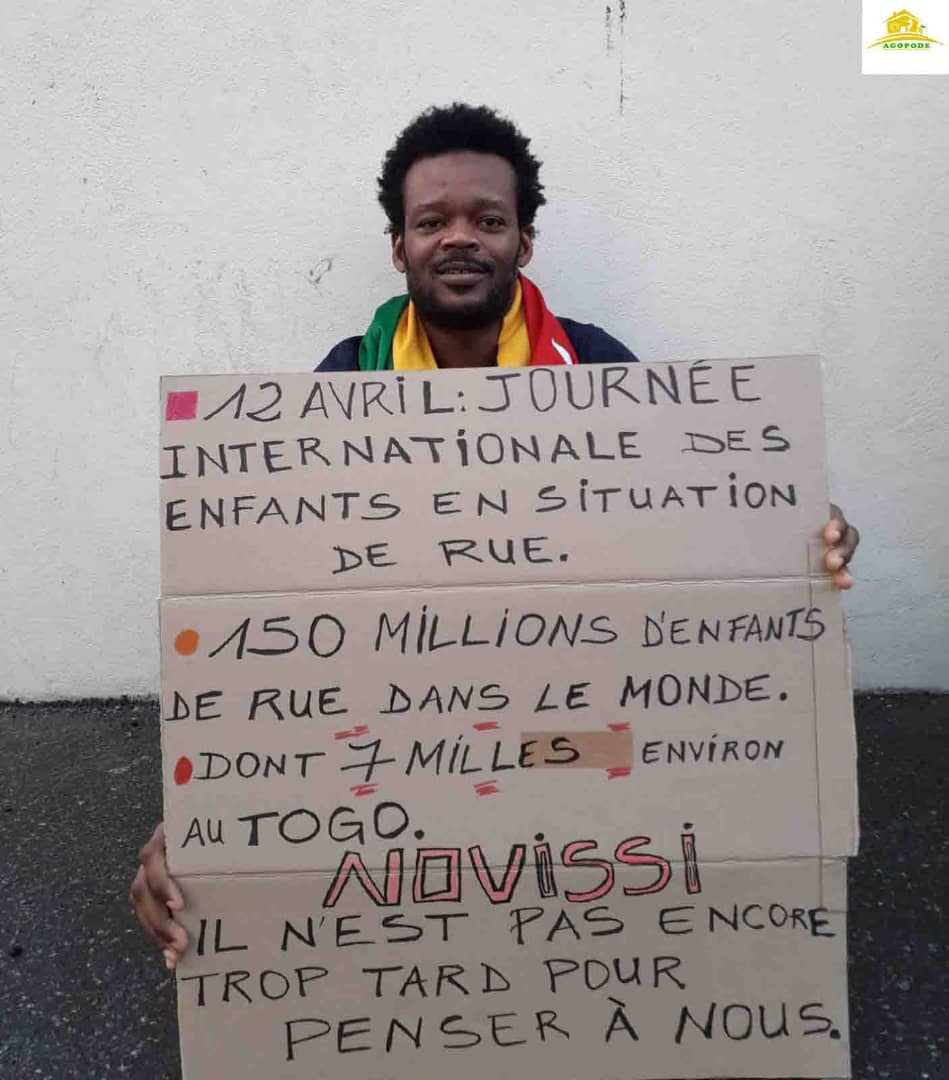 AGOPODE
12 AVRiL: JOURNÉE
INTERNATiONALE DES
ENFANTS EN SiTUATiON
DE RUE.
150 MiLLiONS D'ENFANTS
DE RUE DANS LE MONDE.
DONT 7 MiLLES ENVIRON
AU TOGO.
NOViSSi
IL N'EST PAS ENCORE
TROP TARD POUR
PENSER À NOUS.